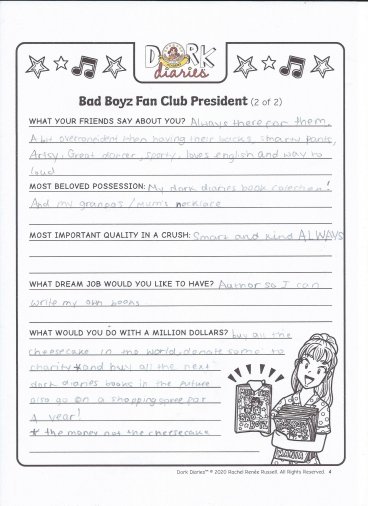 DORK
diaries
Bad Boyz Fan Club President (2 of 2)
WHAT YOUR FRIENDS SAY ABOUT YOU? Always there for them,
A bit overconfident when having their backs, smarty pants,
Artsy, Great dancer, sporty, loves english and way to
loud
MOST BELOVED POSSESSION: My dork diaries book colection!
And my granpas/mum's necklace
MOST IMPORTANT QUALITY IN A CRUSH: Smart and kind ALWAYS
WHAT DREAM JOB WOULD YOU LIKE TO HAVE? Author so I can
write my own books.
WHAT WOULD YOU DO WITH A MILLION DOLLARS? buy all the
cheesecake in the world, donate some* to
charity and buy all the next
dork diaries books in the future
also go on a shopping spree for
1 year!
* the money not the cheesecake
Dork Diaries™ © 2020 Rachel Renée Russell. All Rights Reserved. 4